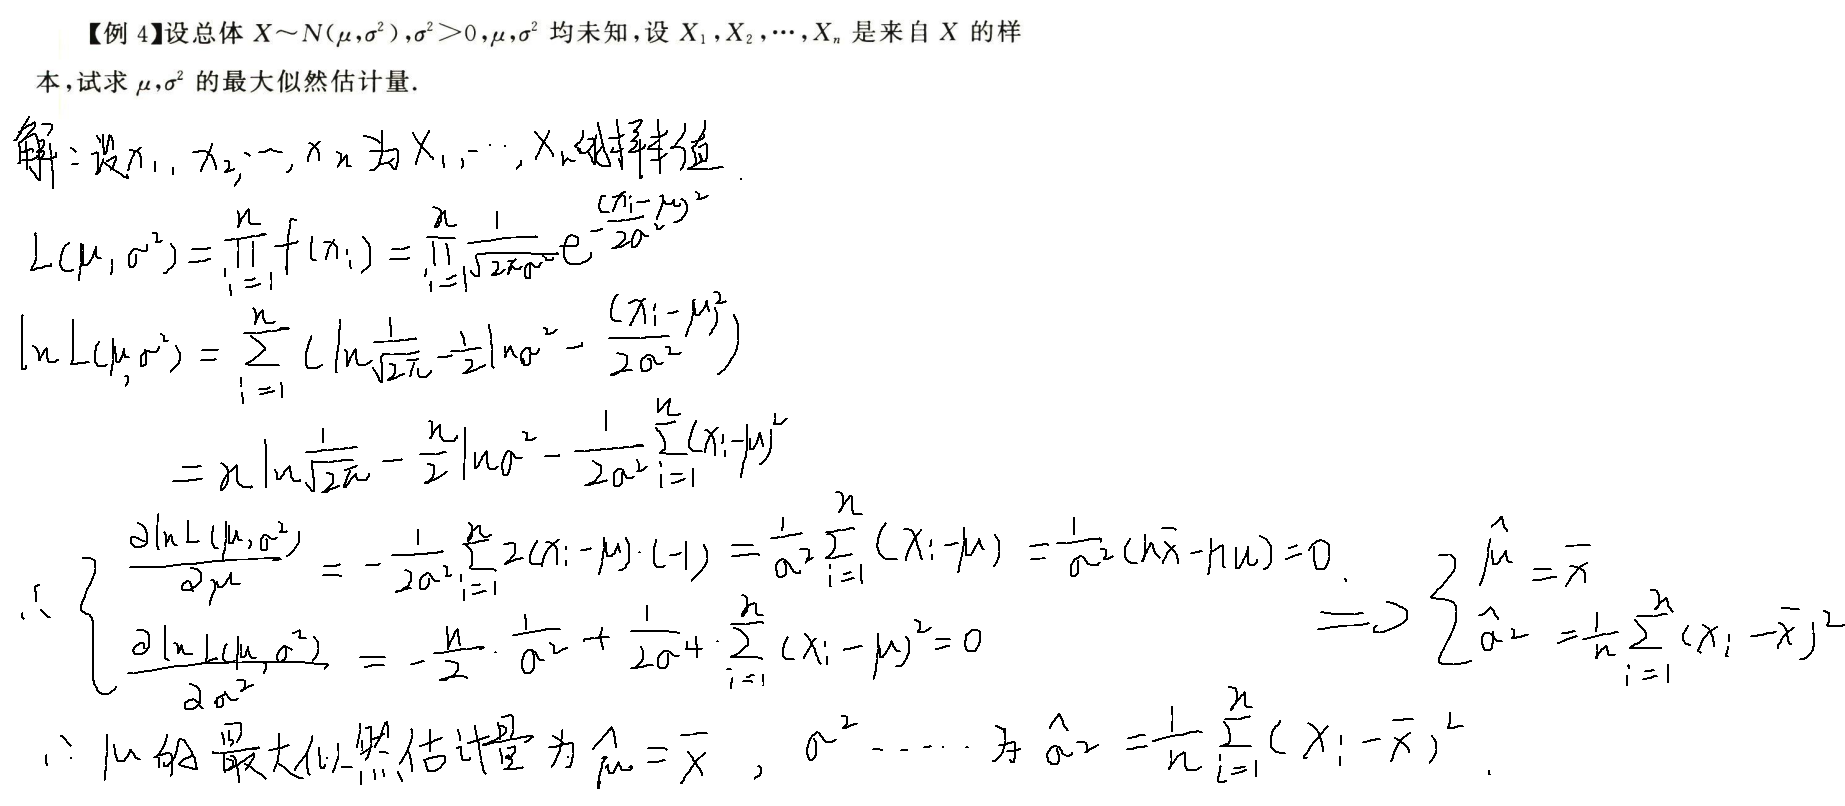 【例 4】设总体 X～N(μ,σ²),σ²＞0,μ,σ² 均未知,设 X₁,X₂,⋯,Xₙ 是来自 X 的样
本,试求 μ,σ² 的最大似然估计量.
解：设x₁, x₂, ⋯, xₙ 为 X₁, ⋯, Xₙ的样本值.
L(μ, σ²) = ∏_{i=1}^{n} f(xᵢ) = ∏_{i=1}^{n} 1/√(2πσ²) e^{-(xᵢ-μ)²/(2σ²)}
ln L(μ,σ²) = ∑_{i=1}^{n} (ln 1/√(2π) - 1/2 lnσ² - (xᵢ-μ)²/(2σ²))
= n ln 1/√(2π) - n/2 lnσ² - 1/(2σ²) ∑_{i=1}^{n} (xᵢ-μ)²
∴ { ∂lnL(μ,σ²)/∂μ = -1/(2σ²) ∑_{i=1}^{n} 2(xᵢ-μ)·(-1) = 1/σ² ∑_{i=1}^{n} (xᵢ-μ) = 1/σ² (nx̄-nμ) = 0.
∂lnL(μ,σ²)/∂σ² = -n/2 · 1/σ² + 1/(2σ⁴) · ∑_{i=1}^{n} (xᵢ-μ)² = 0
=> { μ̂ = x̄
σ̂² = 1/n ∑_{i=1}^{n} (xᵢ-x̄)²
∴ μ的最大似然估计量为 μ̂ = X̄ , σ² ⋯⋯ 为 σ̂² = 1/n ∑_{i=1}^{n} (Xᵢ-X̄)².